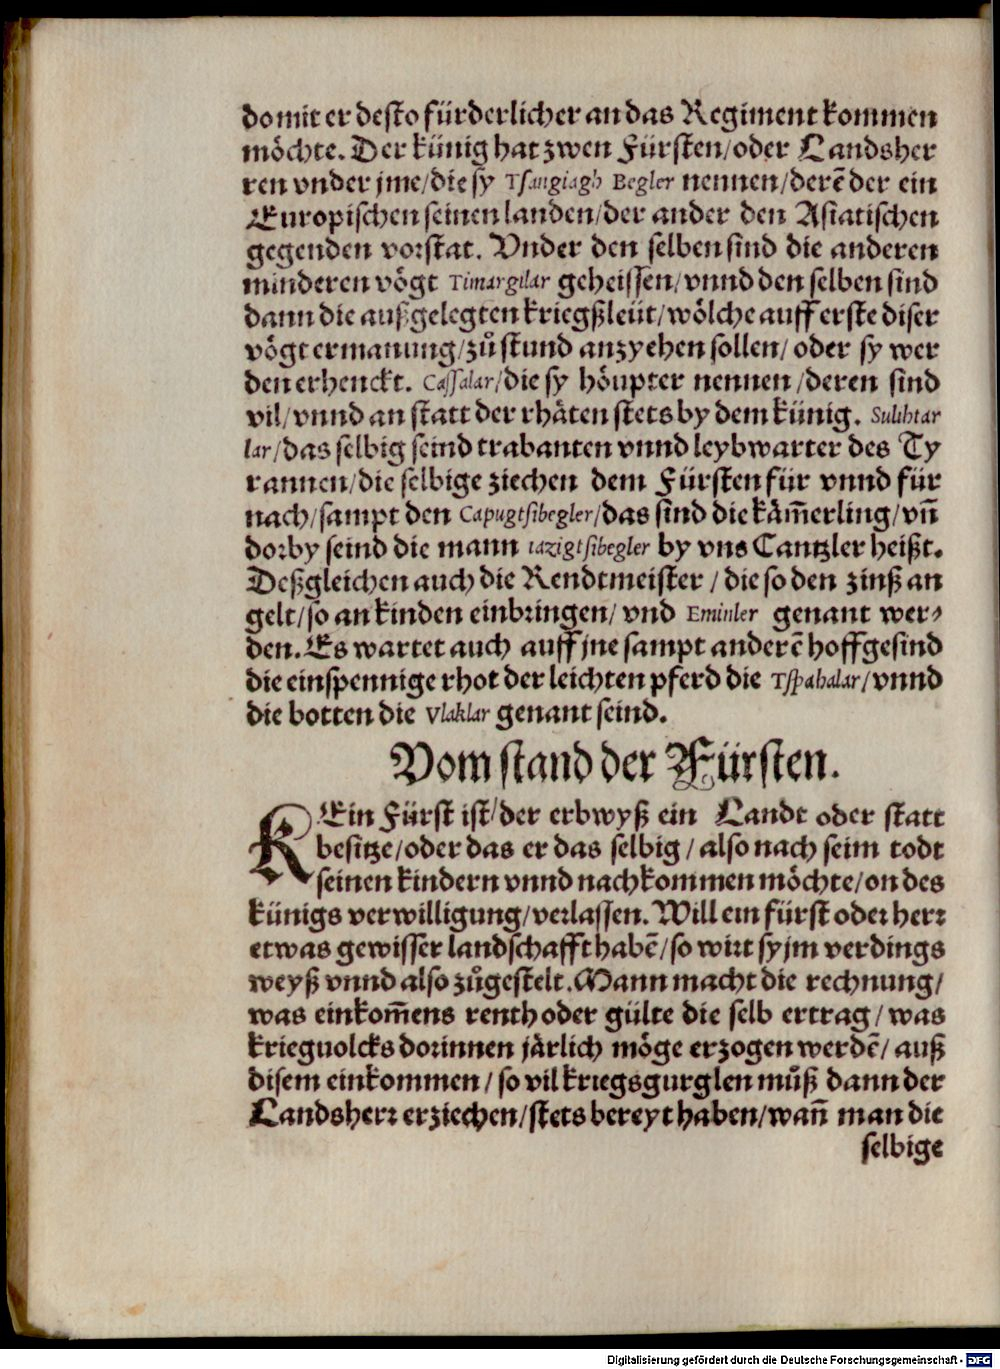 domit er desto fürderlicher an das Regiment kommen
möchte. Der künig hat zwen Fürsten/oder Landsher
ren vnder jme/die sy Tsangiagh Begler nennen/derē der ein
Europischen seinen landen/der ander den Asiatischen
gegenden vorstat. Vnder den selben sind die anderen
minderen vögt Timargilar geheissen/vnnd den selben sind
dann die außgelegten kriegßleüt/wölche auff erste diser
vögt ermanung/zů stund anzyehen sollen/oder sy wer
den erhenckt. Cassalar/die sy höupter nennen/deren sind
vil/vnnd an statt der rhäten stets by dem künig. Sulihtar
lar/das selbig seind trabanten vnnd leybwarter des Ty
rannen/die selbige ziechen dem Fürsten für vnnd für
nach/sampt den Capugtsibegler/das sind die käm̄erling/vn̄
dorby seind die mann iazigtsibegler by vns Cantzler heißt.
Deßgleichen auch die Rendtmeister/die so den zinß an
gelt/so an kinden einbringen/vnd Eminler genant wer-
den. Es wartet auch auff jne sampt anderē hoffgesind
die einspennige rhot der leichten pferd die Tspahalar/vnnd
die botten die Vlaklar genant seind.
Vom stand der Fürsten.
KEin Fürst ist/der erbwyß ein Landt oder statt
besitze/oder das er das selbig/also nach seim todt
seinen kindern vnnd nachkommen möchte/on des
künigs verwilligung/verlassen. Will ein fürst oder herr
etwas gewisser landschafft habē/so wirt sy jm verdings
weyß vnnd also zůgestelt. Mann macht die rechnung/
was einkom̄ens renth oder gülte die selb ertrag/was
krieguolcks dorinnen järlich möge erzogen werdē/auß
disem einkommen/so vil kriegsgurglen můß dann der
Landsherr erziechen/stets bereyt haben/wan̄ man die
selbige
Digitalisierung gefördert durch die Deutsche Forschungsgemeinschaft - DFG